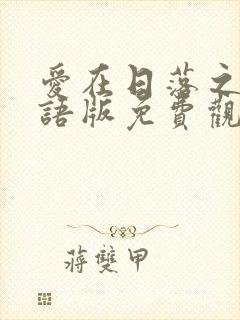 愛在日落之
語版免費觀
蔣雙甲